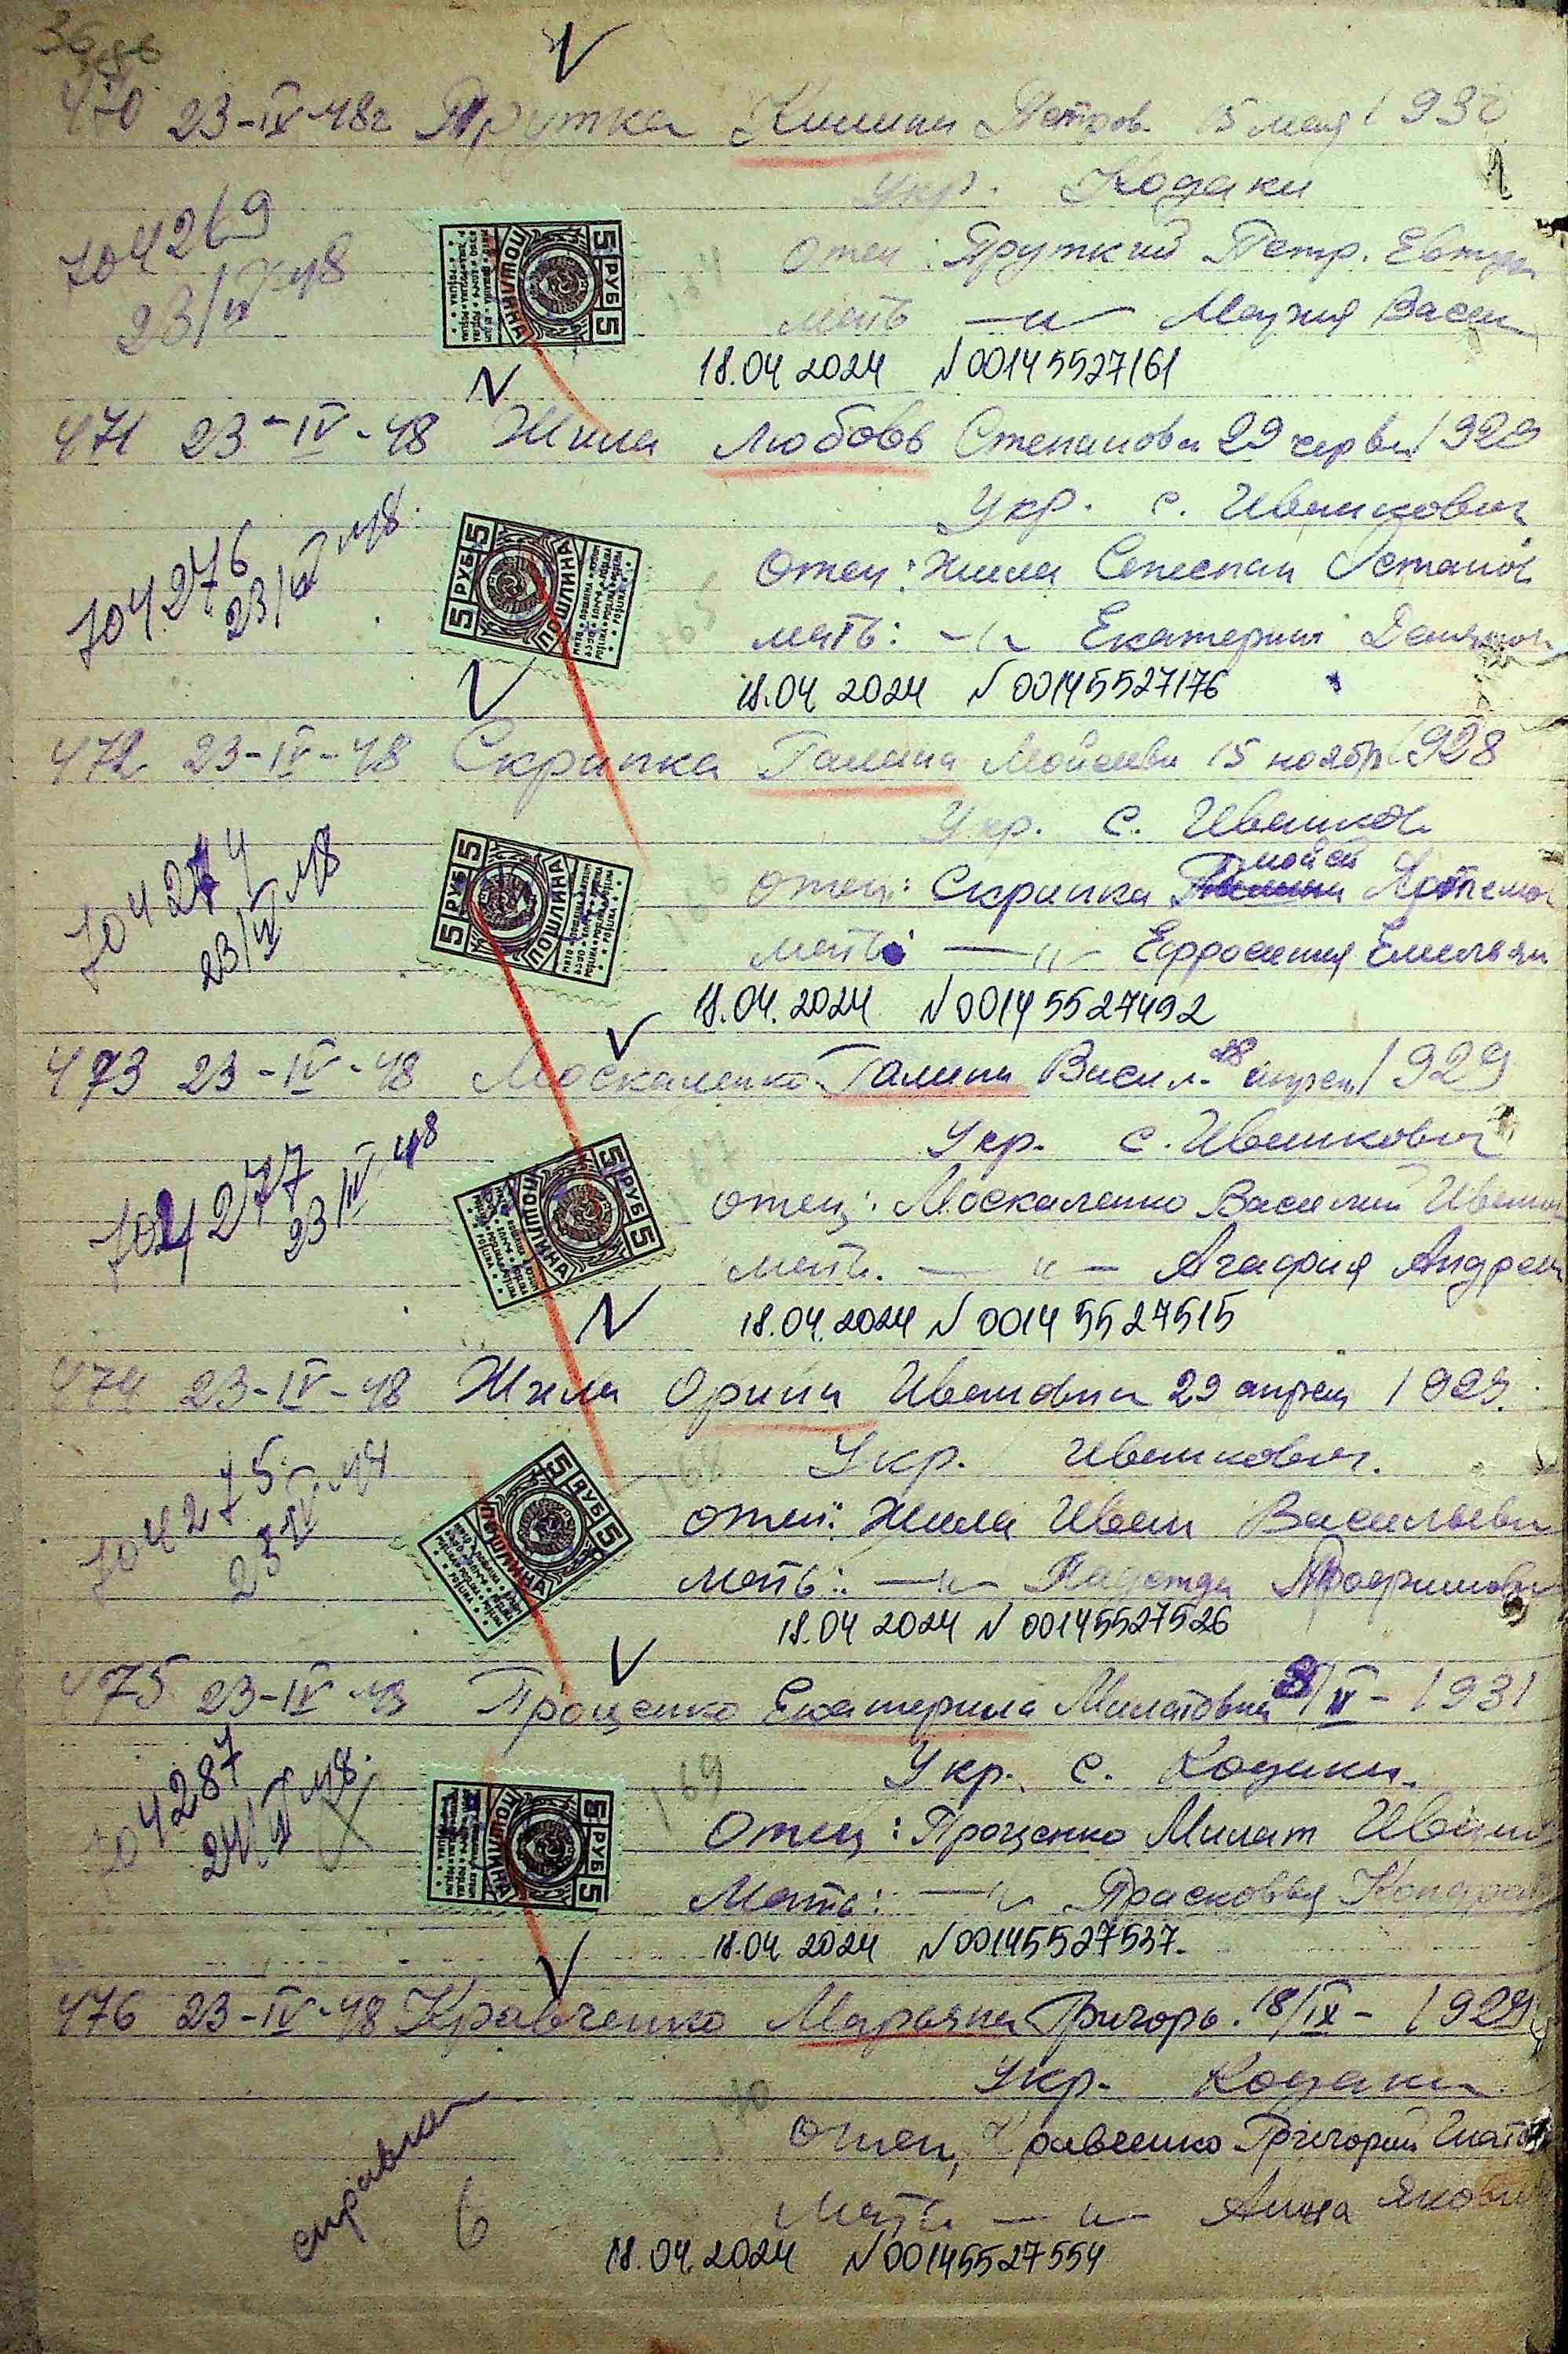 36
470 23-IX-48г Прутка Килина Петров. 15 мая 1930
Укр. Кодаки
704269
23/IV 48
отец: Пруткий Петр. Евтух
мать —〃— Мария Васил
18.04 2024 № 00145527161
471 23-IV-48 Жила Любовь Степанова 29 червня 1929
Укр. с. Ивашкович
704276
23/IV 48.
Отец: Жила Степан Остапов
мать: —〃— Екатерина
18.04 2024 № 00145527176
472 23-IV-48 Скрипка Галина Мойсеевн 15 ноябр 1928
Укр. с. Ивашков
704274
23/IV 48
отец: Скрипка Мойсей Артемов
мать: —〃— Ефросиния Емельян
18.04.2024 № 00145527492
473 23-IV-48 Москаленко Галина Васил. 18 апрел 1929
Укр. с. Ивашкович
704277
23/IV 48
отец: Москаленко Василий Иванов
мать. —〃— Агафия Андреев
18.04.2024 № 00145527515
474 23-IV-48 Жила Орина Ивановна 29 апрел 1929.
Укр. Ивашкович.
704275
23/IV 48
отец: Жила Иван Васильеви
мать: —〃— Надежда Трофимовн
18.04 2024 № 00145527526
475 23-IV-48 Проценко Екатерина Милатовна /IV- 1931
Укр. с. Кодаки.
704287
24/IV 48.
169
Отец: Проценко Милат Ивано
Мать: —〃— Прасковья Кондрат
18.04 2024 № 00145527537.
476 23-IV-48 Кравченко Марьяна Григорь. 18/IX- 1929
Укр. Кодаки
170
отец, Кравченко Григорий Игнатов
справка
6
Мать —〃— Анна Яковл
18.04.2024 № 00145527554
5 РУБ 5
ПОШЛИНА
5 РУБ 5
ПОШЛИНА
5 РУБ 5
ПОШЛИНА
5 РУБ 5
ПОШЛИНА
5 РУБ 5
ПОШЛИНА
5 РУБ 5
ПОШЛИНА